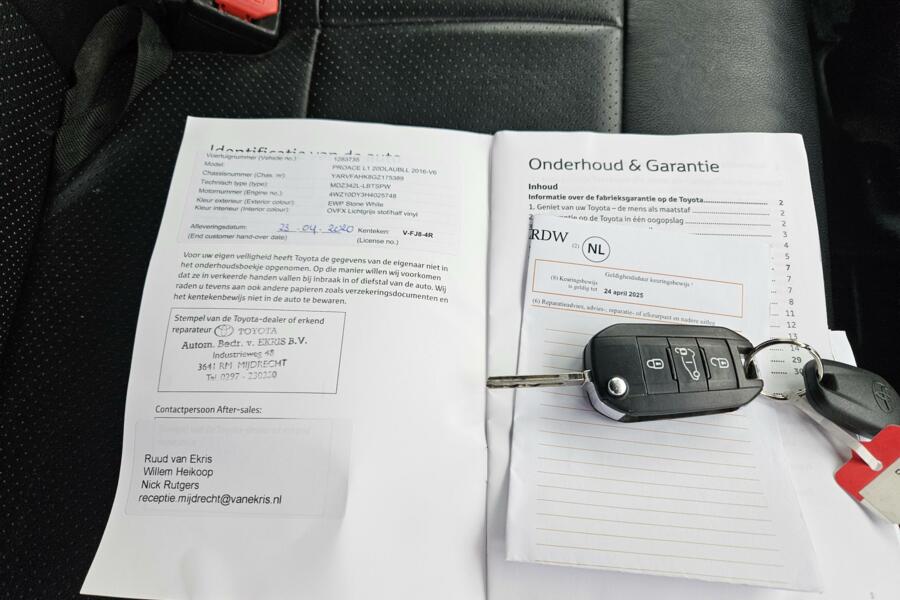 Identificatie van de auto
Voertuignummer (Vehicle no.): 1283735
Model: PROACE L1 20DLAUBLL 2016-V6
Chassisnummer (Chas. nr): YARVFAHK8GZ175389
Technisch type (type): MDZ342L-LBTSPW
Motornummer (Engine no.): 4WZ10DY3H4025748
Kleur exterieur (Exterior colour): EWP Stone White
Kleur interieur (Interior colour): OVFX Lichtgrijs stof/half vinyl
Afleveringsdatum: 23-04-2020 Kenteken: V-FJ8-4R
(End customer hand-over date) (License no.)
Voor uw eigen veiligheid heeft Toyota de gegevens van de eigenaar niet in
het onderhoudsboekje opgenomen. Op die manier willen wij voorkomen
dat ze in verkeerde handen vallen bij inbraak in of diefstal van de auto. Wij
raden u tevens aan ook andere papieren zoals verzekeringsdocumenten en
het kentekenbewijs niet in de auto te bewaren.
Stempel van de Toyota-dealer of erkend
reparateur TOYOTA
Autom. Bedr. v. EKRIS B.V.
Industrieweg 48
3641 RM MIJDRECHT
Tel. 0297 - 230250
Contactpersoon After-sales:
Ruud van Ekris
Willem Heikoop
Nick Rutgers
receptie.mijdrecht@vanekris.nl
Onderhoud & Garantie
Inhoud
Informatie over de fabrieksgarantie op de Toyota 2
1. Geniet van uw Toyota – de mens als maatstaf 2
op de Toyota in één oogopslag 2
3
4
5
7
7
8
11
12
13
14
29
30
RDW (2) NL
Geldigheidsduur keuringsbewijs
(8) Keuringsbewijs
is geldig tot 24 april 2025
(6) Reparatieadvies, advies-, reparatie- of afkeurpunt en nadere uitleg